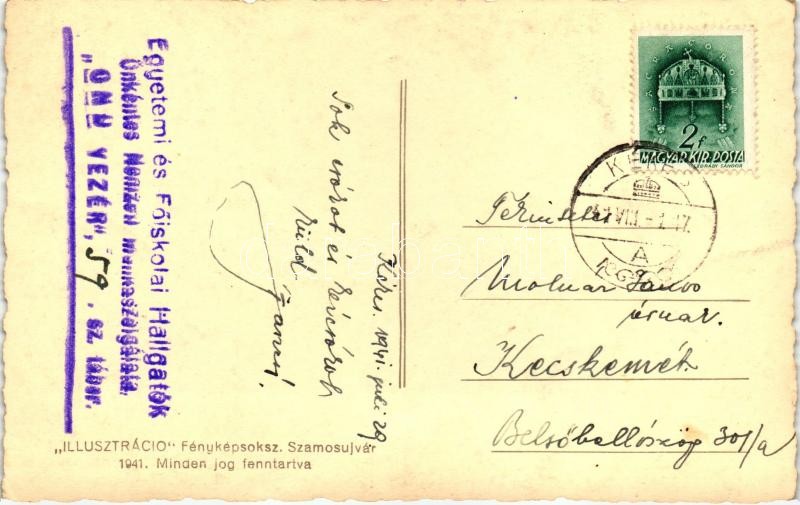 Egyetemi és Főiskolai Hallgatók
Önkéntes Nemzeti Munkaszolgálata.
„OND VEZÉR", 59. sz. tábor.
Sok csókot és
küld
Jancsi.
Kérő. 1941. juli 29
SACRA CORONA
2f
MAGYAR KIR. POSTA
LÉGRÁDI SÁNDOR
41 VIII. - 1. 17.
A
Molnár János
úrnak.
Kecskemét
Belsőballószög 301/a
„ILLUSZTRÁCIO" Fényképsoksz. Szamosujvár
1941. Minden jog fenntartva